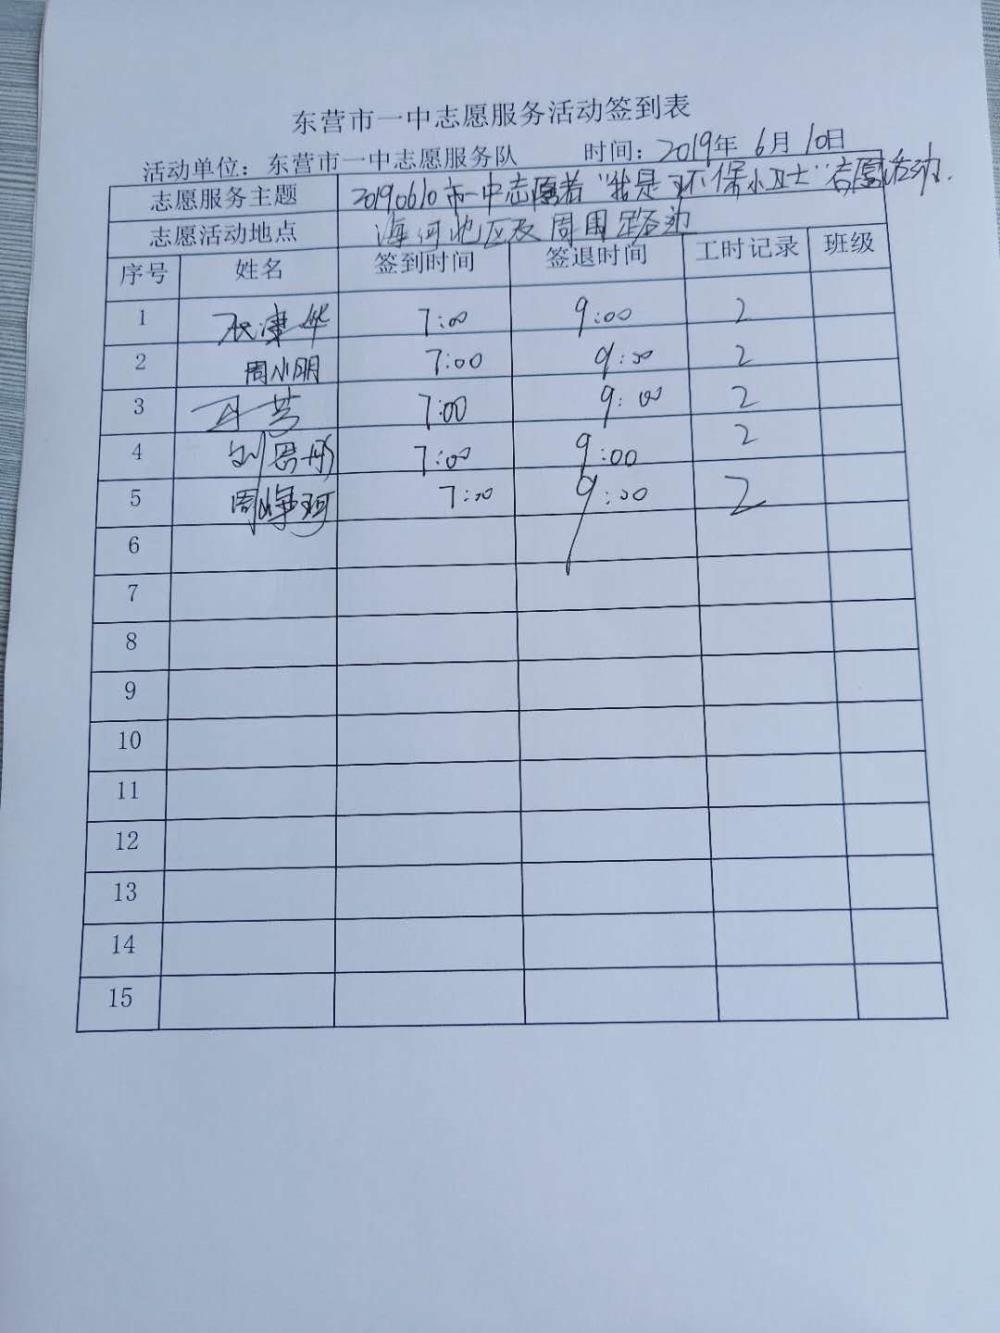 东营市一中志愿服务活动签到表
活动单位：东营市一中志愿服务队 时间：2019年 6月 10日
志愿服务主题 20190610市一中志愿者“我是环保小卫士”志愿活动.
志愿活动地点 海河地区及周围路边
序号 姓名 签到时间 签退时间 工时记录 班级
1 7:00 9:00 2
2 周小朋 7:00 9:00 2
3 7:00 9:00 2
4 刘 7:00 9:00 2
5 周 7:00 9:00 2
6
7
8
9
10
11
12
13
14
15